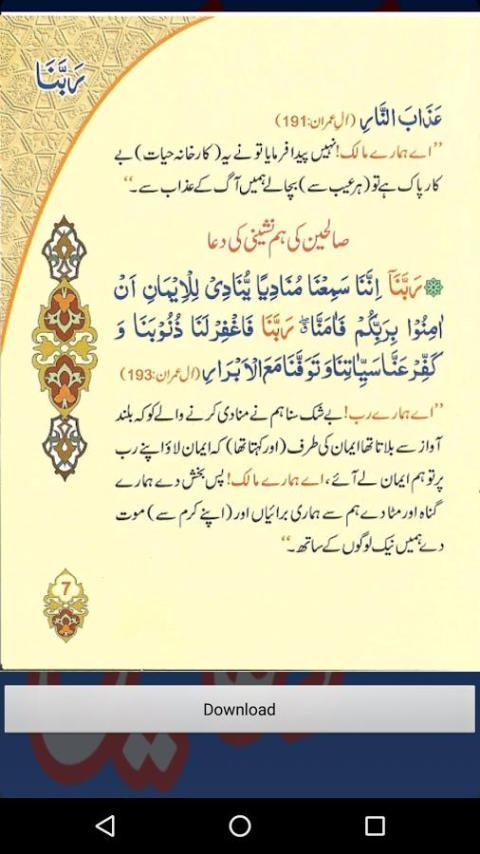 رَبَّنَا
عَذَابَ النَّارِ (اٰلِ عمران:191)
’’اے ہمارے مالک! نہیں پیدا فرمایا تو نے یہ (کارخانہ حیات) بے
کار پاک ہے تو (ہر عیب سے) بچالے ہمیں آگ کے عذاب سے۔‘‘
صالحین کی ہم نشینی کی دعا
رَبَّنَاۤ اِنَّنَا سَمِعْنَا مُنَادِیًا یُّنَادِیْ لِلْاِیْمَانِ اَنْ
اٰمِنُوْا بِرَبِّكُمْ فَاٰمَنَّا ۖۗ رَبَّنَا فَاغْفِرْ لَنَا ذُنُوْبَنَا وَ
كَفِّرْ عَنَّا سَیِّاٰتِنَا وَ تَوَفَّنَا مَعَ الْاَبْرَارِ (اٰلِ عمران:193)
’’اے ہمارے رب! بے شک سنا ہم نے منادی کرنے والے کو کہ بلند
آواز سے بلاتا تھا ایمان کی طرف (اور کہتا تھا) کہ ایمان لاؤ اپنے رب
پر تو ہم ایمان لے آئے، اے ہمارے مالک! پس بخش دے ہمارے
گناہ اور مٹا دے ہم سے ہماری برائیاں اور (اپنے کرم سے) موت
دے ہمیں نیک لوگوں کے ساتھ۔‘‘
7
Download